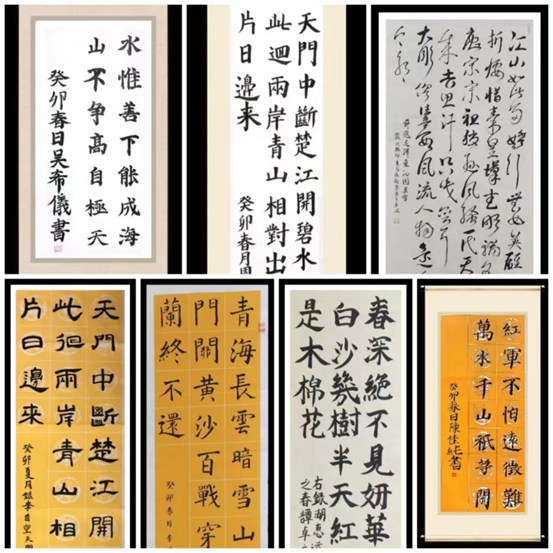 水惟善下能成海
山不争高自極天
癸卯春日吴希儀書
天門中斷楚江開碧水
此迴兩岸青山相對出
片日邊来
癸卯春月周
江山如此多嬌引無數英雄
折腰惜秦皇漢武略輸文
唐宗宋祖稍遜風騷一代天
吉思汗只識彎弓
大雕俱往矣數風流人物還
天門中斷楚江開
此徊兩岸青山相
片日邊来
癸卯夏月錄李白望天
青海長雲暗雪山
門關黄沙百戰穿
蘭終不還
癸卯春月李
春深絶不見妍華
白沙幾樹半天紅
是木棉花
右録湖惠
之春譚卓
紅軍不怕遠徵難
萬水千山衹等閑
癸卯春日陳佳書